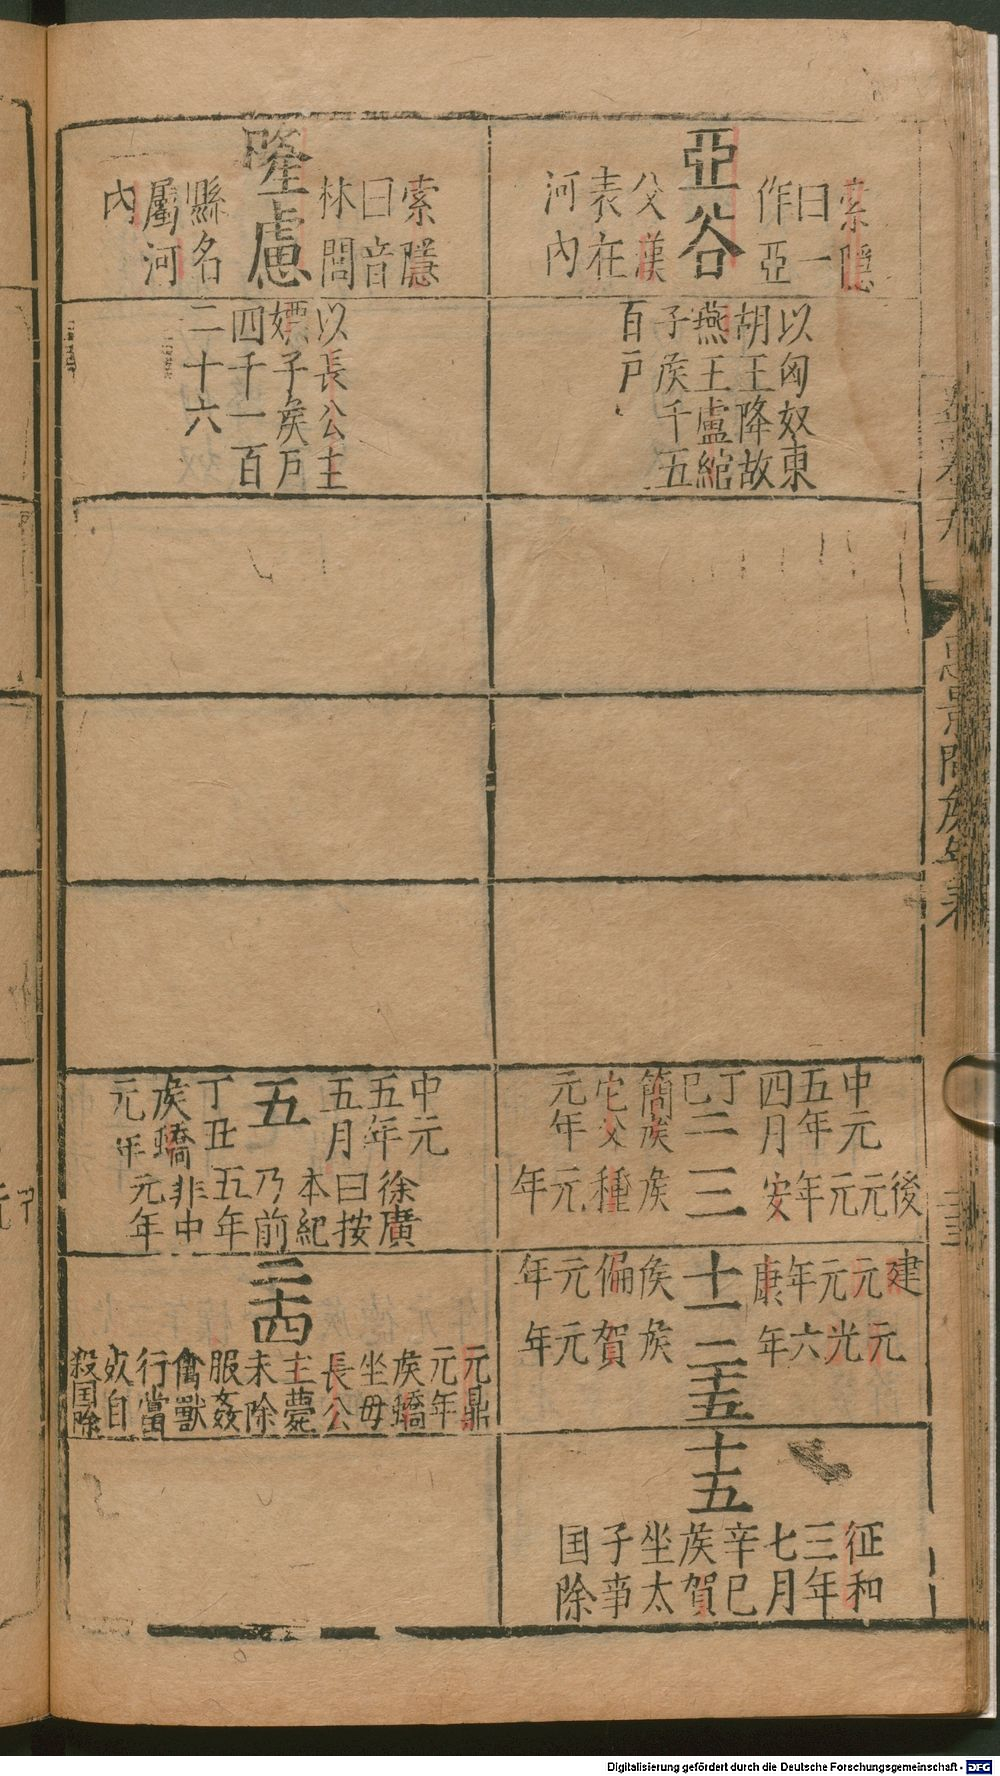 亞谷
索隱
曰一
作亞
父漢
表在
河內
以匈奴東
胡王降故
燕王盧綰
子侯千五
百戶
中元
五年
四月
丁
巳
二
簡侯
它父
元年
三
後元
元年
安
侯
種
元年
十一
建元
元年
康
侯
偏
元年
二十五
元光
六年
侯賀
元年
十五
征和
三年
七月
辛巳
侯賀
坐太
子事
国除
隆慮
索隱
曰音
林閭
縣名
屬河
內
以長公主
嫖子侯戶
四千一百
二十六
中元
五年
五月
丁丑
侯蟜
元年
五
徐廣
曰按
本紀
乃前
五年
非中
元年
二十四
元鼎
元年
侯蟜
坐毋
長公
主薨
未除
服姦
禽獸
行當
死自
殺国除
惠景間侯年表
Digitalisierung gefördert durch die Deutsche Forschungsgemeinschaft - DFG